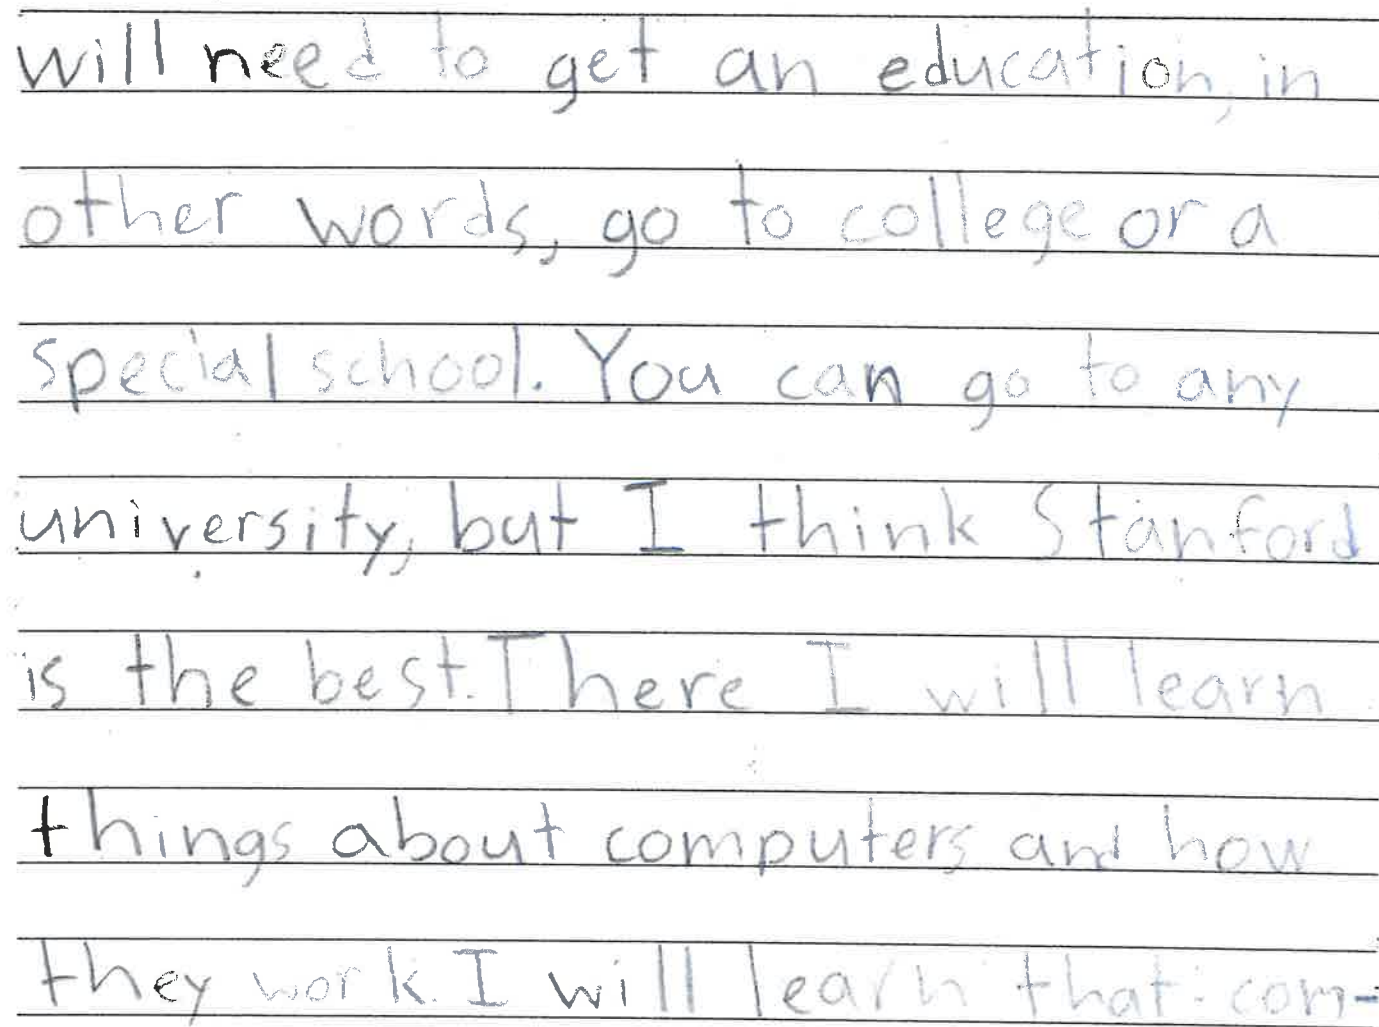 will need to get an education, in
other words, go to college or a
special school. You can go to any
university, but I think Stanford
is the best. There I will learn
things about computers and how
they work. I will learn that com-